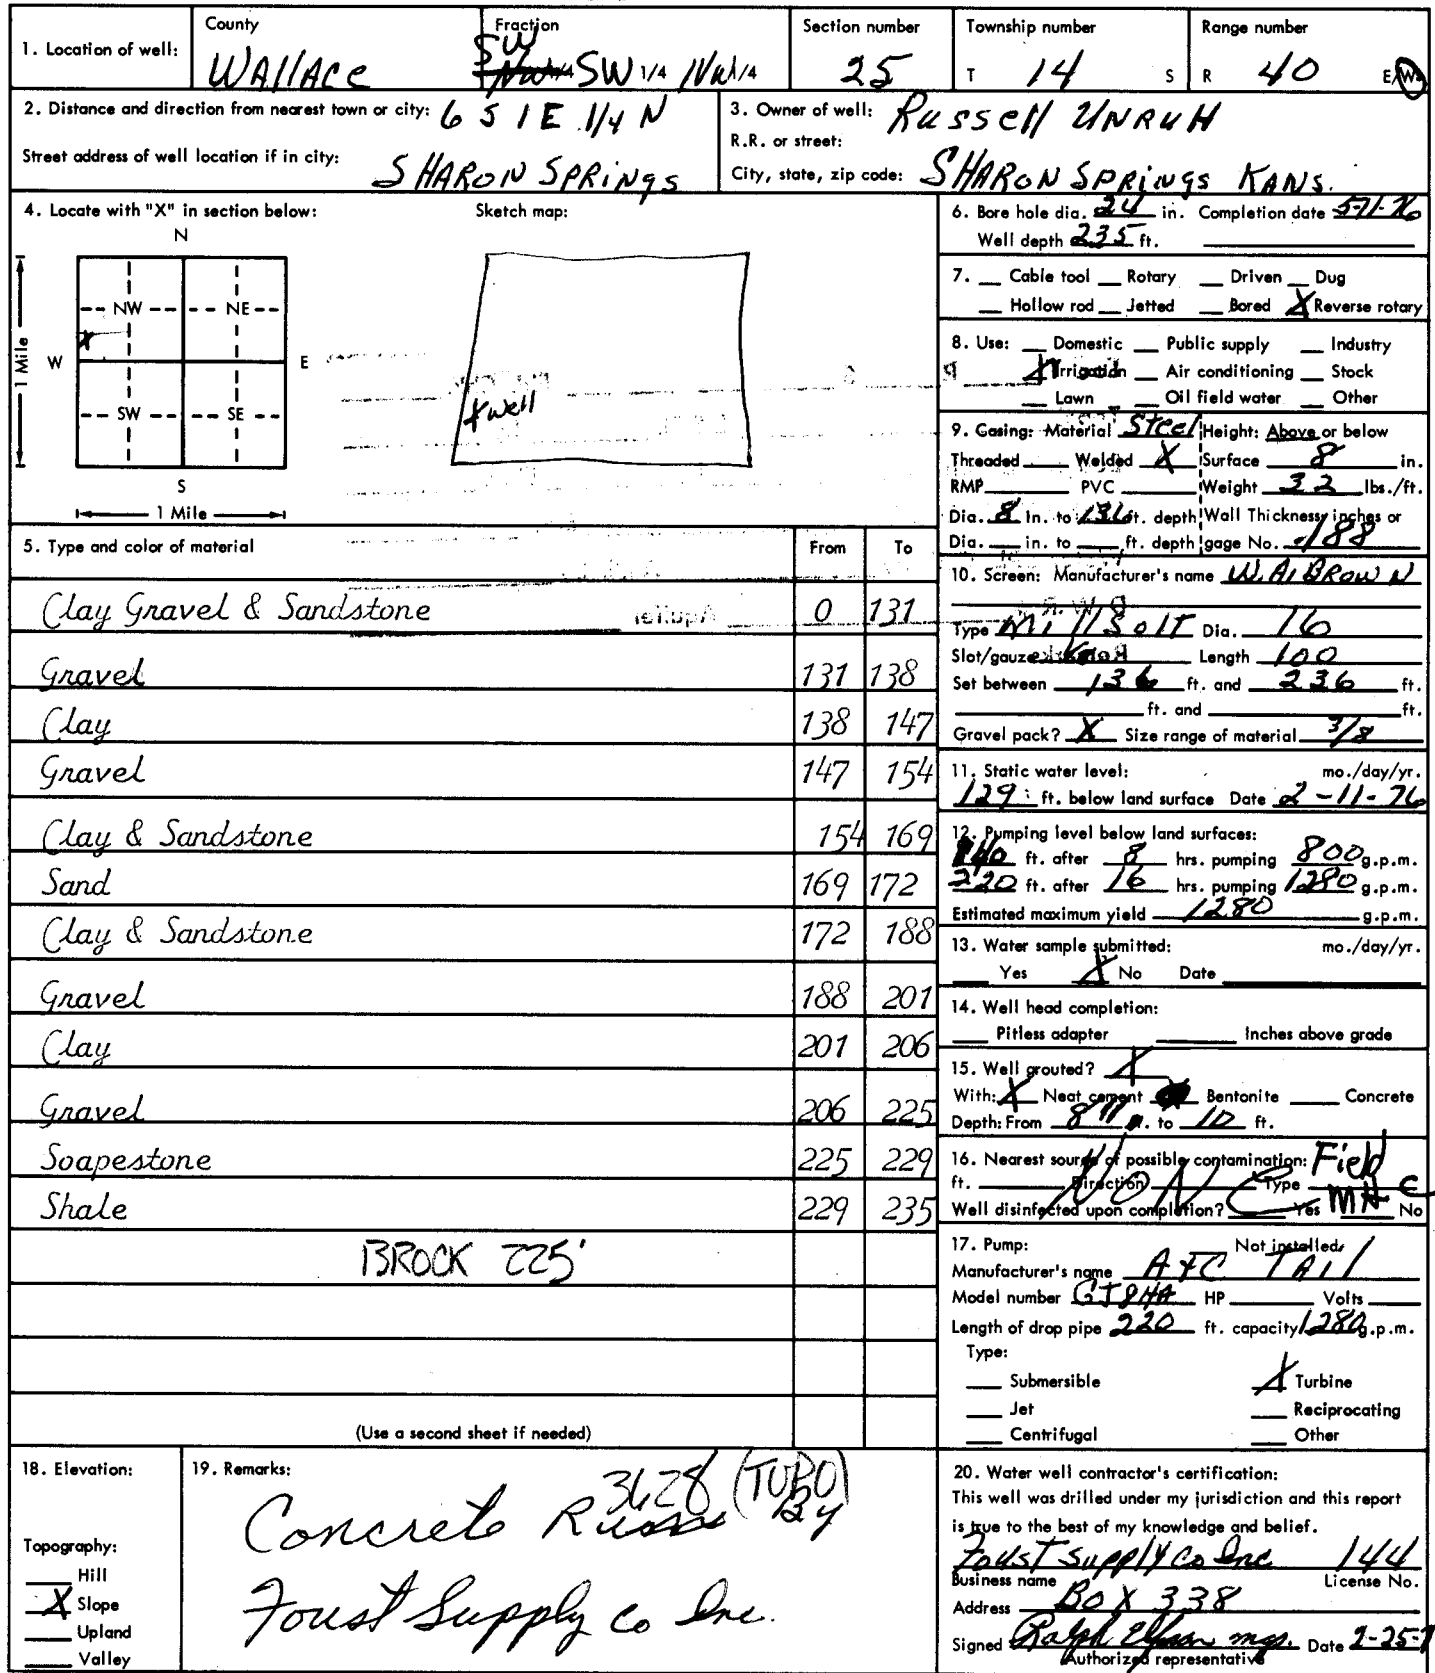 1. Location of well: County Fraction Section number Township number Range number
Wallace SW SW 1/4 NW 1/4 25 T 14 S R 40 E/W
2. Distance and direction from nearest town or city: 6 S 1 E 1/4 N
Street address of well location if in city: SHARON SPRINGS
3. Owner of well: Russell UNRUH
R.R. or street:
City, state, zip code: SHARON SPRINGS KANS.
4. Locate with "X" in section below: Sketch map:
N
NW NE
X
W E
1 Mile
SW SE
S
1 Mile
X well
5. Type and color of material From To
Clay Gravel & Sandstone 0 131
Gravel 131 138
Clay 138 147
Gravel 147 154
Clay & Sandstone 154 169
Sand 169 172
Clay & Sandstone 172 188
Gravel 188 201
Clay 201 206
Gravel 206 225
Soapestone 225 229
Shale 229 235
BROCK 225'
(Use a second sheet if needed)
6. Bore hole dia. 24 in. Completion date
Well depth 235 ft.
7. Cable tool Rotary Driven Dug
Hollow rod Jetted Bored X Reverse rotary
8. Use: Domestic Public supply Industry
X Irrigation Air conditioning Stock
Lawn Oil field water Other
9. Casing: Material Steel Height: Above or below
Threaded Welded X Surface 8 in.
RMP PVC Weight 32 lbs./ft.
Dia. 8 In. to 136 ft. depth Wall Thickness inches or
Dia. in. to ft. depth gage No. .188
10. Screen: Manufacturer's name W.A. BROWN
Type Mill Solt Dia. 16
Slot/gauze Length 100
Set between 136 ft. and 236 ft.
ft. and ft.
Gravel pack? X Size range of material 3/8
11. Static water level: mo./day/yr.
129 ft. below land surface Date 2-11-76
12. Pumping level below land surfaces:
140 ft. after 8 hrs. pumping 800 g.p.m.
220 ft. after 16 hrs. pumping 1280 g.p.m.
Estimated maximum yield 1280 g.p.m.
13. Water sample submitted: mo./day/yr.
Yes X No Date
14. Well head completion:
Pitless adapter Inches above grade
15. Well grouted? X
With: X Neat cement Bentonite Concrete
Depth: From 8" ft. to 10 ft.
16. Nearest source of possible contamination: Field
ft. Direction Type
NONE
Well disinfected upon completion? Yes No
17. Pump: Not installed
Manufacturer's name
Model number HP Volts
Length of drop pipe 220 ft. capacity 1280 g.p.m.
Type:
Submersible X Turbine
Jet Reciprocating
Centrifugal Other
18. Elevation:
Topography:
Hill
X Slope
Upland
Valley
19. Remarks: 3628 (TOPO)
Concrete By
Foust Supply Co Inc.
20. Water well contractor's certification:
This well was drilled under my jurisdiction and this report
is true to the best of my knowledge and belief.
Foust Supply Co Inc 144
Business name License No.
Address BOX 338
Signed Ralph mgr. Date 2-25-7
Authorized representative